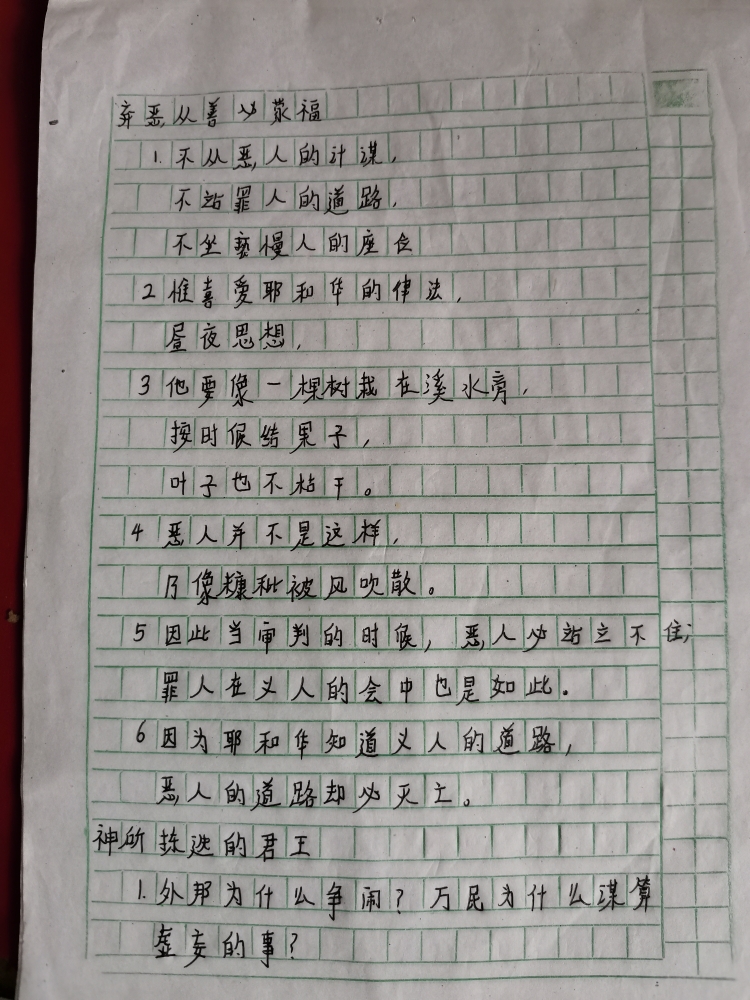 弃恶从善必蒙福
1.不从恶人的计谋,
不站罪人的道路,
不坐亵慢人的座位
2惟喜爱耶和华的律法,
昼夜思想,
3他要像一棵树栽在溪水旁,
按时候结果子,
叶子也不枯干。
4恶人并不是这样,
乃像糠秕被风吹散。
5因此当审判的时候,恶人必站立不住;
罪人在义人的会中也是如此。
6因为耶和华知道义人的道路,
恶人的道路却必灭亡。
神所拣选的君王
1.外邦为什么争闹?万民为什么谋算
虚妄的事?